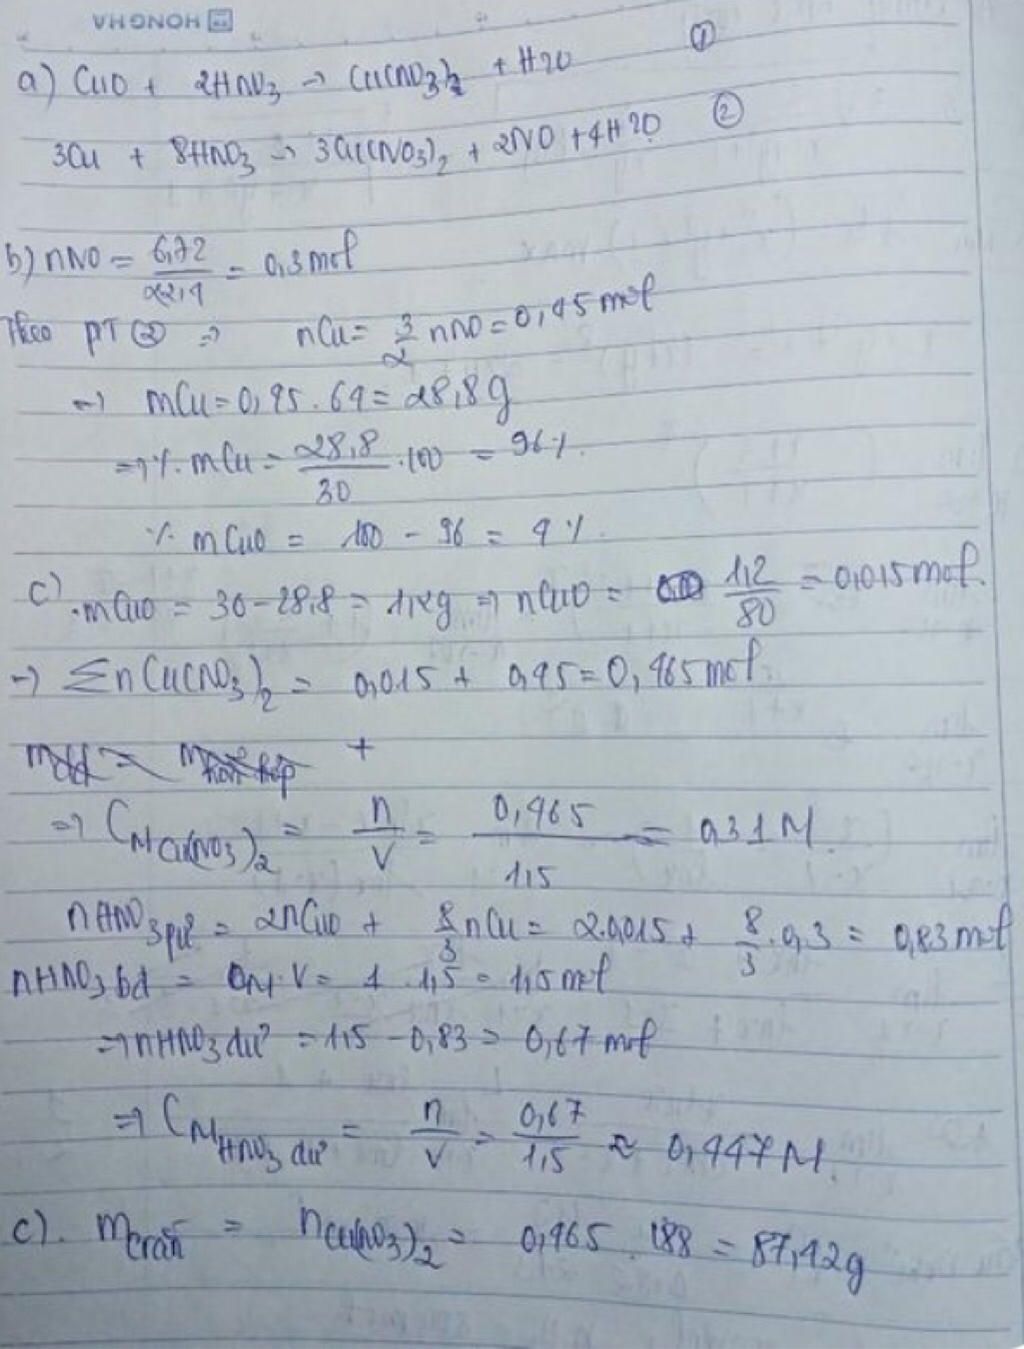 VHONGHA
①
a) CuO + 2HNO3 → Cu(NO3)2 + H2O
3Cu + 8HNO3 → 3Cu(NO3)2 + 2NO + 4H2O ②
b) nNO = 6,72 / 22,4 = 0,3 mol
Theo PT ② ⇒ nCu = 3/2 nNO = 0,45 mol
→ mCu = 0,45 . 64 = 28,8g
⇒ % mCu = 28,8 / 30 . 100 = 96%.
% mCuO = 100 - 96 = 4%.
c) . mCuO = 30 - 28,8 = 1,2g ⇒ nCuO = 1,2 / 80 = 0,015 mol.
→ ΣnCu(NO3)2 = 0,015 + 0,45 = 0,465 mol.
mdd = mhỗn hợp +
⇒ CM Cu(NO3)2 = n / V = 0,465 / 1,5 = 0,31 M.
nHNO3 pứ = 2nCuO + 8/3 nCu = 2.0,015 + 8/3 . 0,3 = 0,83 mol
nHNO3 bđ = CM . V = 1 . 1,5 = 1,5 mol
⇒ nHNO3 dư = 1,5 - 0,83 = 0,67 mol
⇒ CM HNO3 dư = n / V = 0,67 / 1,5 ≈ 0,447 M.
c). mcrắn = nCu(NO3)2 = 0,465 . 188 = 87,42g